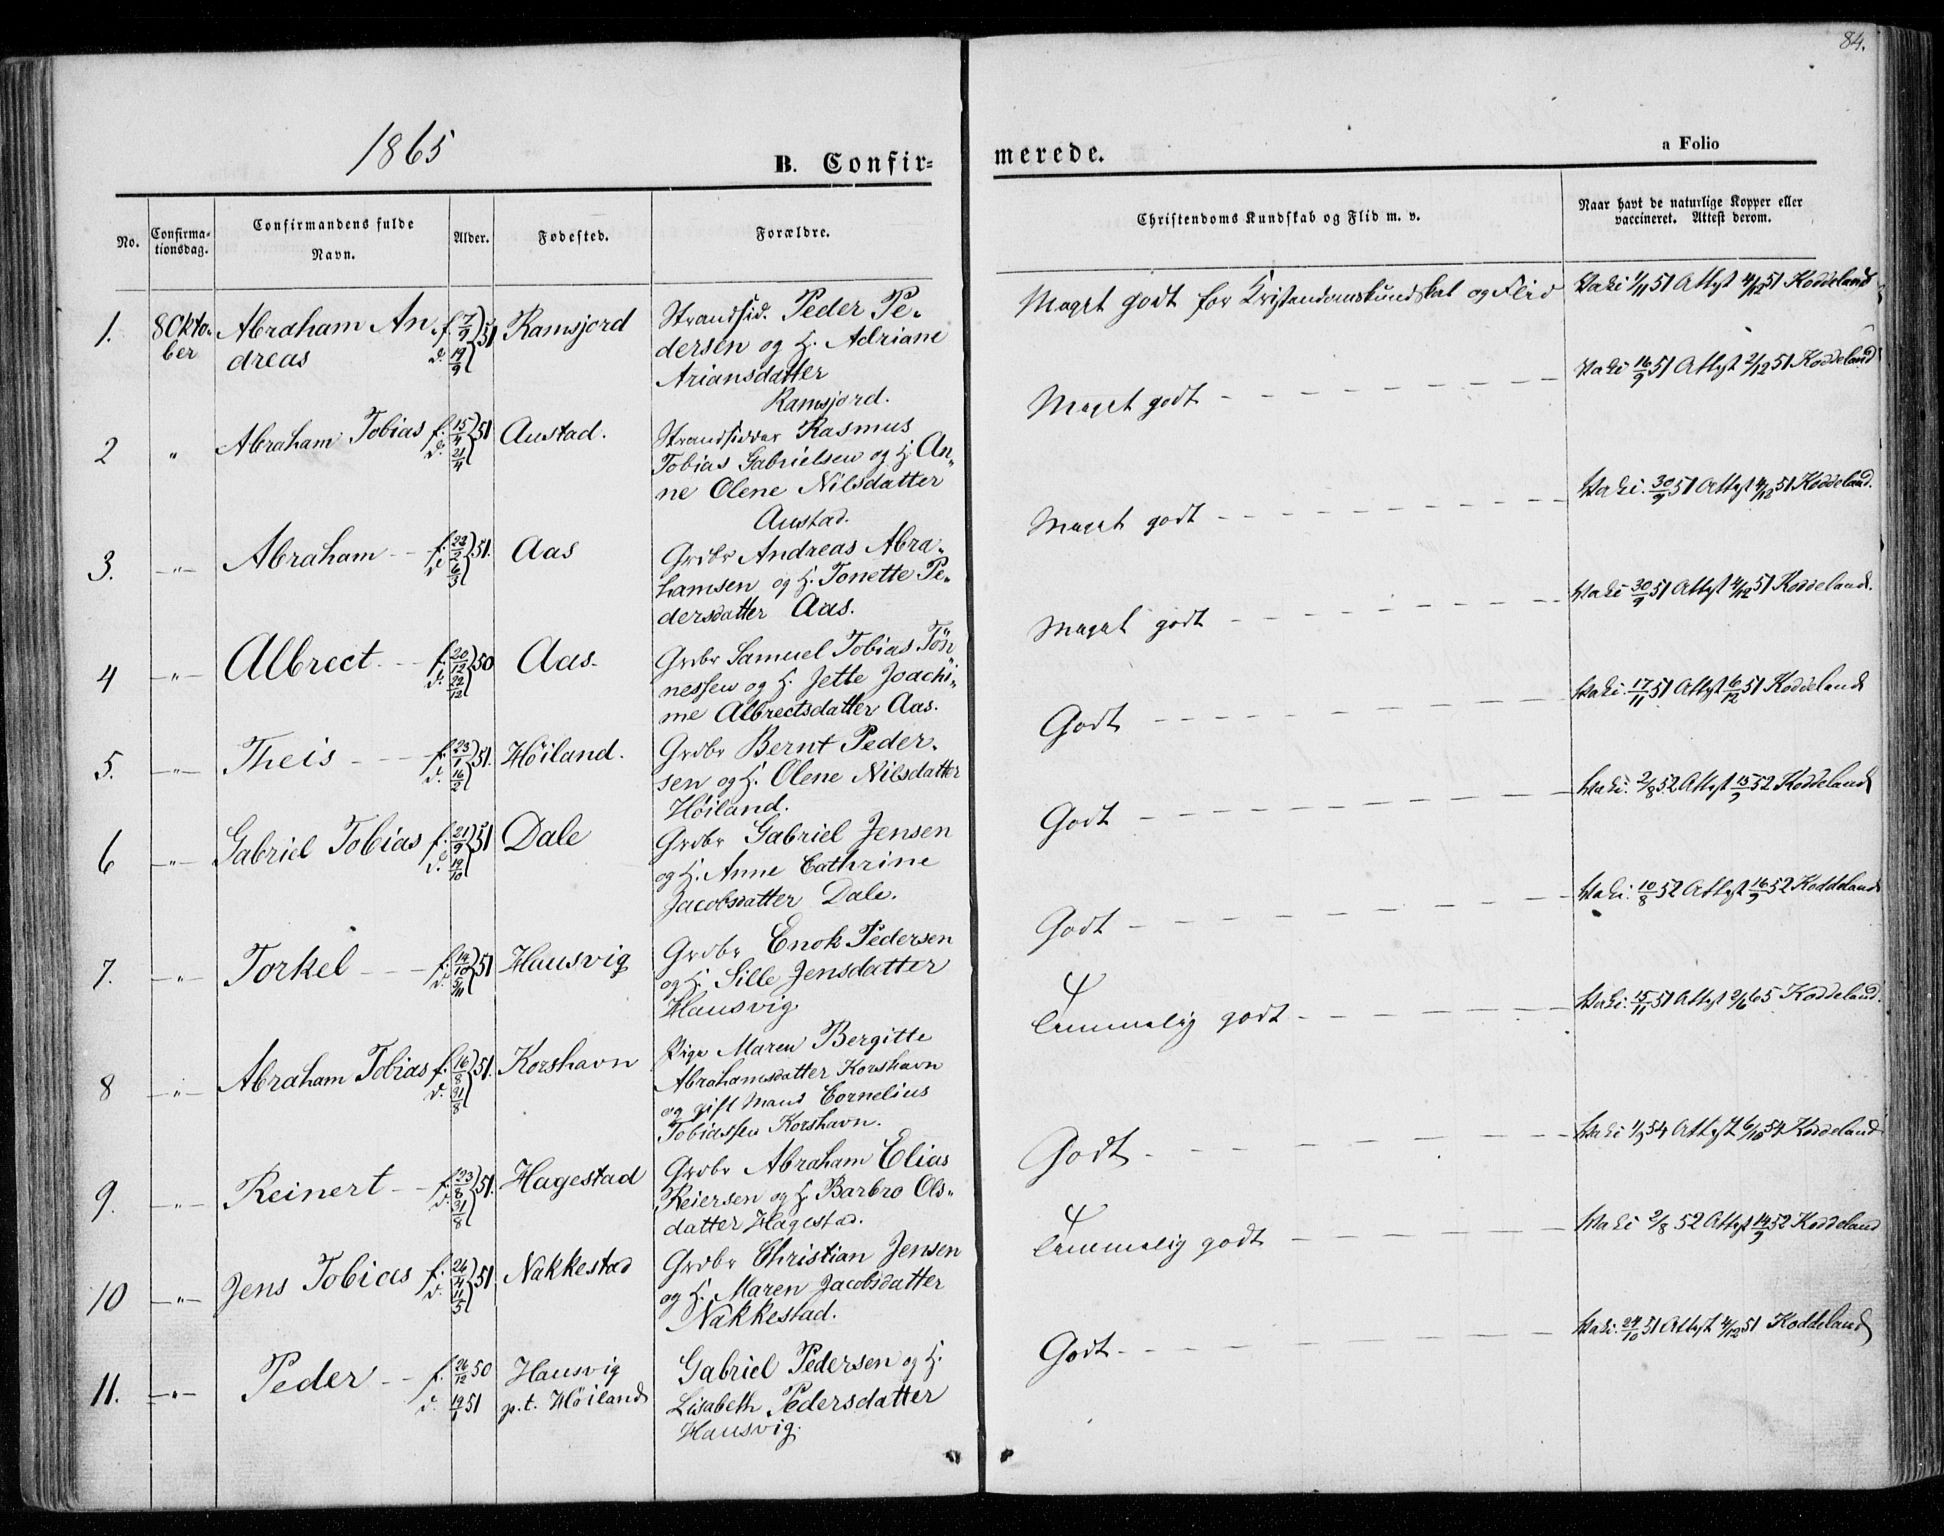 84.
1865
B. Confir-
merede.
a Folio
No.
Confirma-
tionsdag.
Confirmandens fulde
Navn.
Alder.
Fødested.
Forældre.
Christendoms Kundskab og Flid m. v.
Naar havt de naturlige Kopper eller
vaccineret. Attest derom.
1. 8 Okto- Abraham An f. 7/9 51 Ramsjord Strandsid. Peder Pe- Meget godt for Kristendomskundskab og Flid Vaci 1/11 51 Attest 4/12 51 Koddeland
ber dreas d. 19/9 dersen og H. Adriane
Ariansdatter
Ramsjord.
2 " Abraham Tobias f. 15/4 51 Austad. Strandsidder Rasmus Meget godt Vaci 16/9 51 Attest 2/12 51 Koddeland
d. 21/4 Tobias Gabrielsen og H. An-
ne Olene Nilsdatter
Austad.
3. " Abraham f. 23/2 51. Aas Grdbr Andreas Abra- Meget godt Vaci. 30/9 51 Attest 4/12 51 Koddeland.
d. 6/3 hamsen og H. Tonette Pe-
dersdatter Aas.
4 " Albrect. f. 20/12 50 Aas. Grdbr Samuel Tobias Tøn- Meget godt Vaci 30/9 51 Attest 4/12 51 Koddeland.
d. 22/12 nessen og H. Jette Joachi-
me Albrectsdatter Aas.
5. " Theis f. 23/1 51. Høiland. Grdbr Bernt Peder- Godt Vaci. 17/11 51 Attest 6/12 51 Koddeland
d. 16/2 sen og H. Olene Nilsdatter
Høiland.
6 " Gabriel Tobias f. 21/9 51 Dale Grdbr Gabriel Jensen Godt Vaci. 2/8 52 Attest 15/9 52 Koddeland
d. 19/10 og H. Anne Cathrine
Jacobsdatter Dale.
7. " Torkel f. 14/10 51 Hausvig Grdbr Enok Pedersen Godt Vaci. 10/8 52 Attest 16/9 52 Koddeland
d. 5/11 og H. Sille Jensdatter
Hausvig
8 " Abraham Tobias f. 16/8 51. Korshavn Pige Maren Bergitte Temmelig godt Vaci. 15/11 51 Attest 2/6 65 Koddeland.
d. 31/8 Abrahamsdatter Korshavn
og gift Mand Cornelius
Tobiassen Korshavn.
9. " Reinert f. 23/8 51. Hagestad Grdbr Abraham Elias Godt Vaci 1/9 54 Attest 6/10 54 Koddeland
d. 31/8 Reiersen og H. Barbro Ols-
datter Hagestad.
10 " Jens Tobias f. 26/4 51. Nakkestad Grdbr Christian Jensen Temmelig godt Vaci 2/8 52 Attest 14/9 52 Koddeland
d. 11/5 og H. Maren Jacobsdatter
Nakkestad.
11. " Peder f. 26/12 50 Hausvig Gabriel Pedersen og H. Godt Vaci. 24/10 51 Attest 4/12 51 Koddeland
d. 19/1 51 p.t. Høiland Lisabeth Pedersdatter
Hausvig.